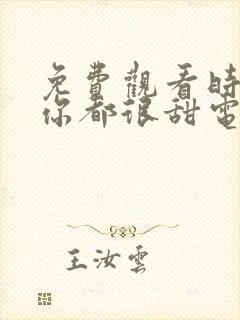 免費觀看時
你都很甜電
王汝雲